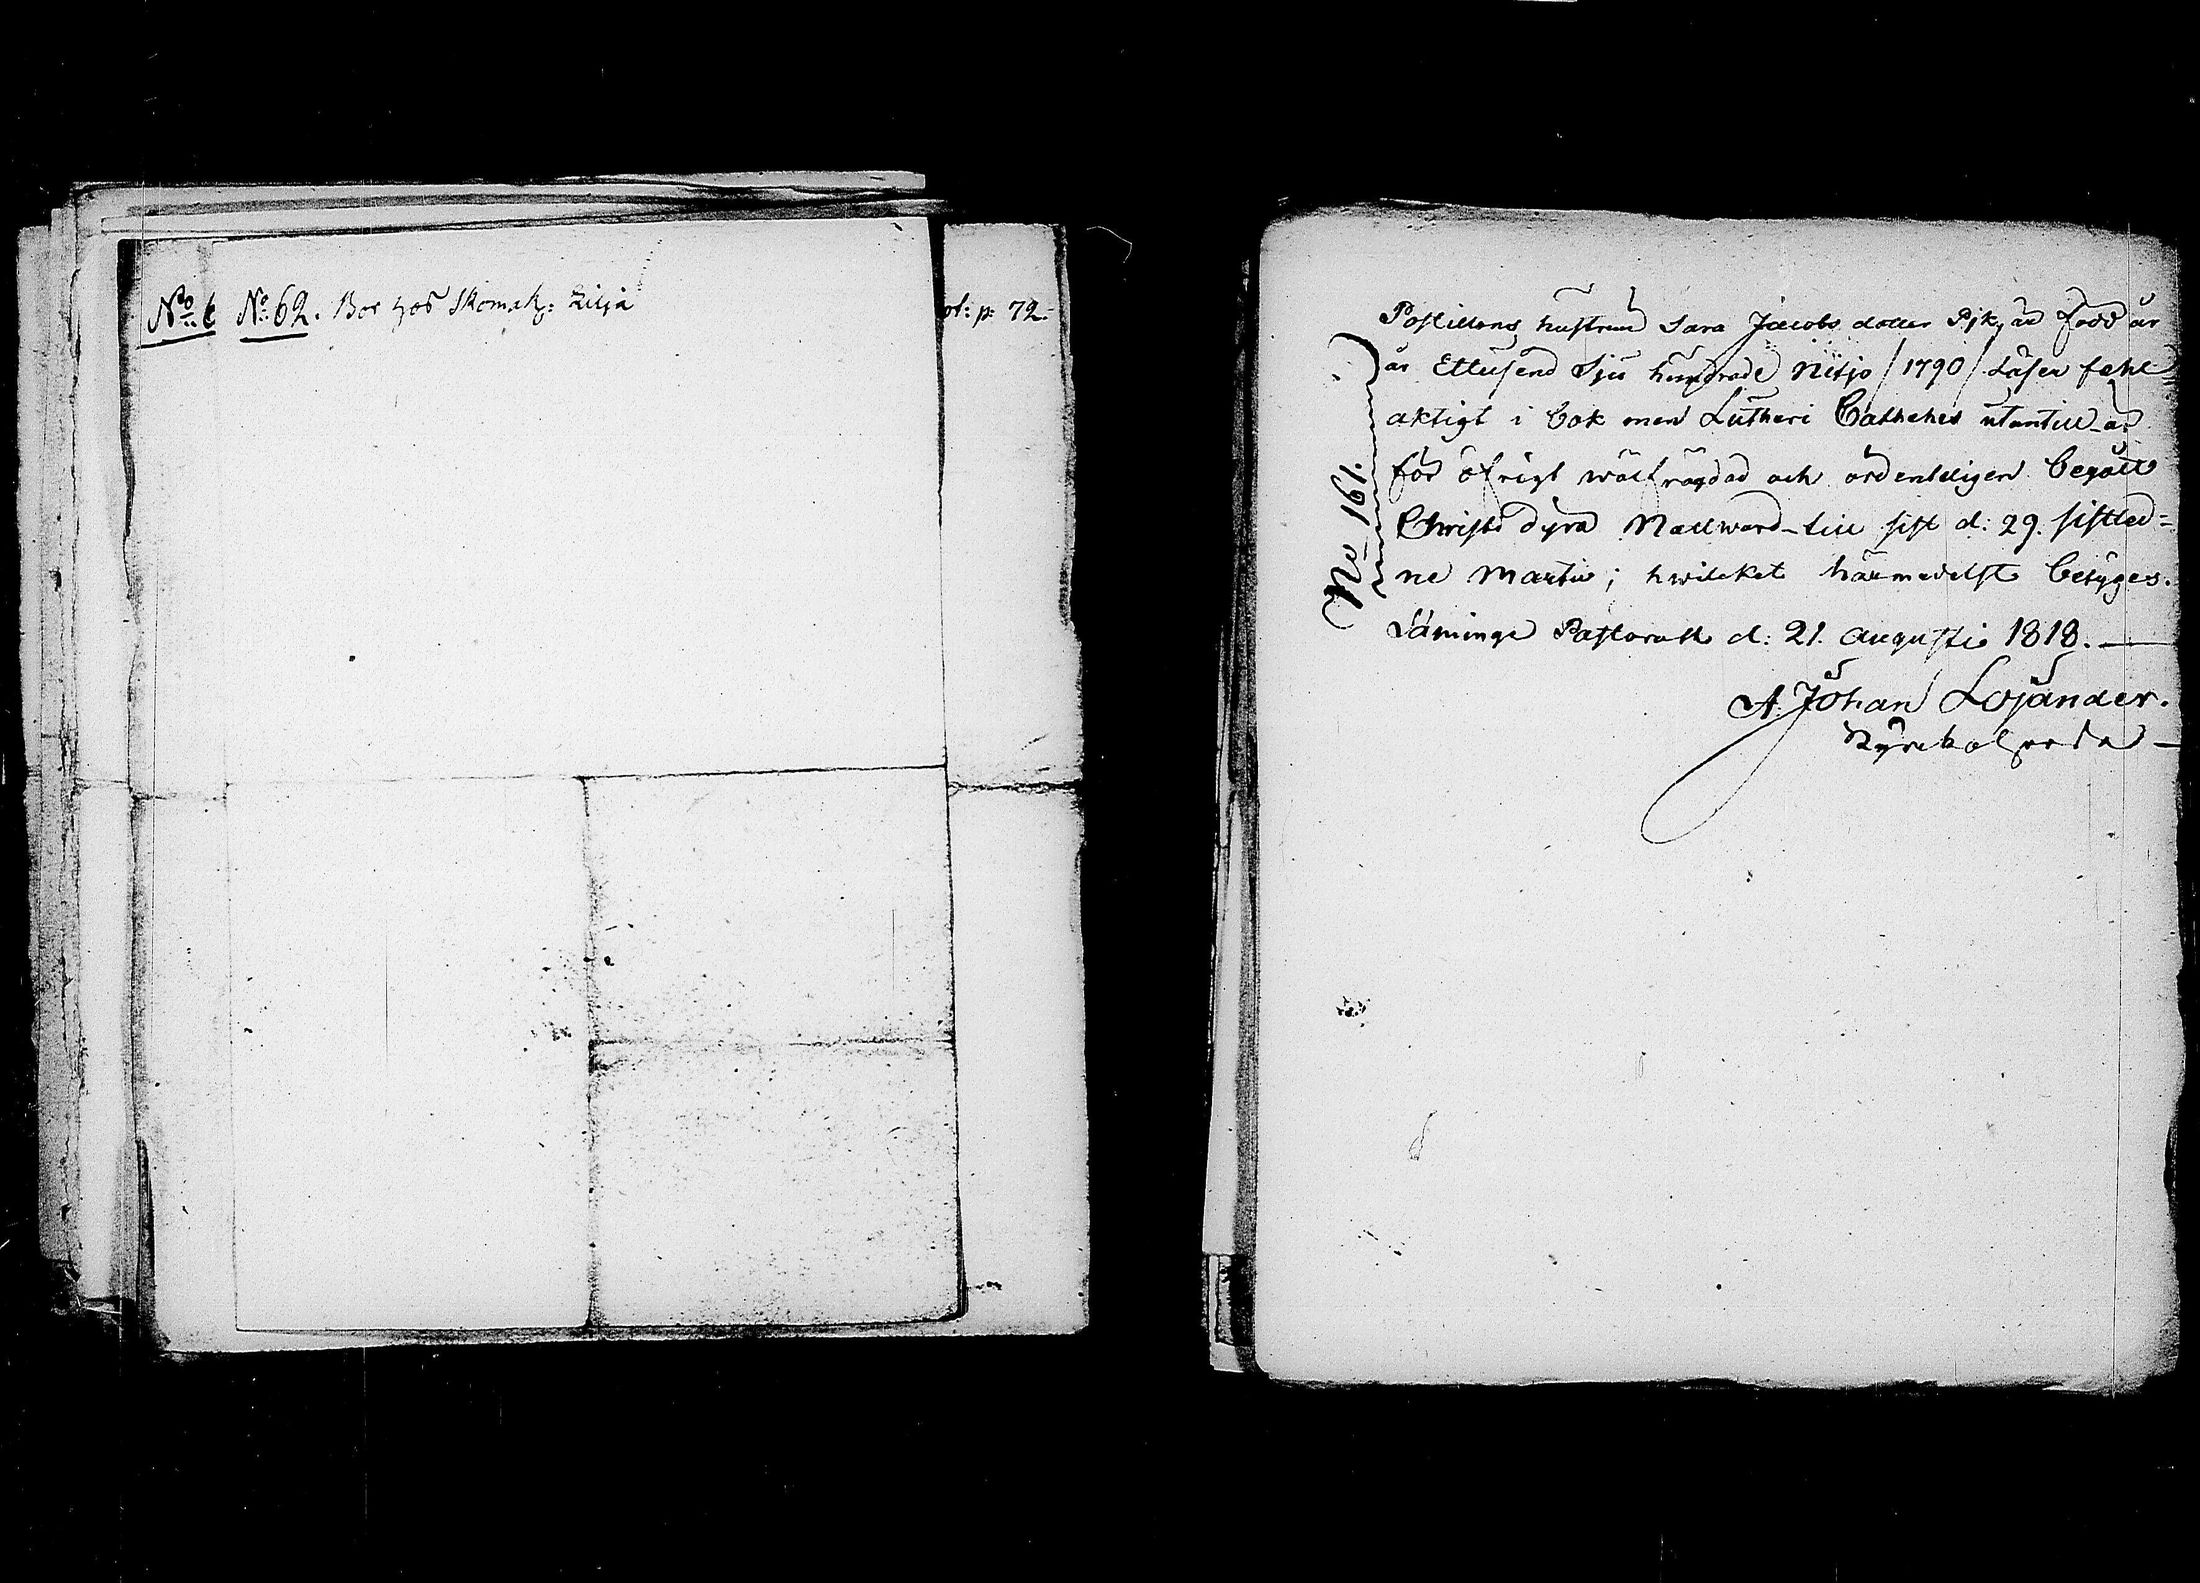 No 6
No 62. Bor hos Skomak: Lilja
ol: p: 72.
No 161.
Postillons hustrun Sara Jacobs dotter är född år
år Ettusend Sju hundrade Nitijo /1790/ Läser fehl
aktigt i bok men Lutheri Cathehes utantill är
för öfrigt wälfrägdad och ordenteligen begått
Christi dyra Nattward till sist d: 29. sistled=
ne Martii; hwilcket härmedelst betyges.
Säminge Pastorath d: 21. Augusti 1818.
A. Johan Lojander.
Kyrckoherde